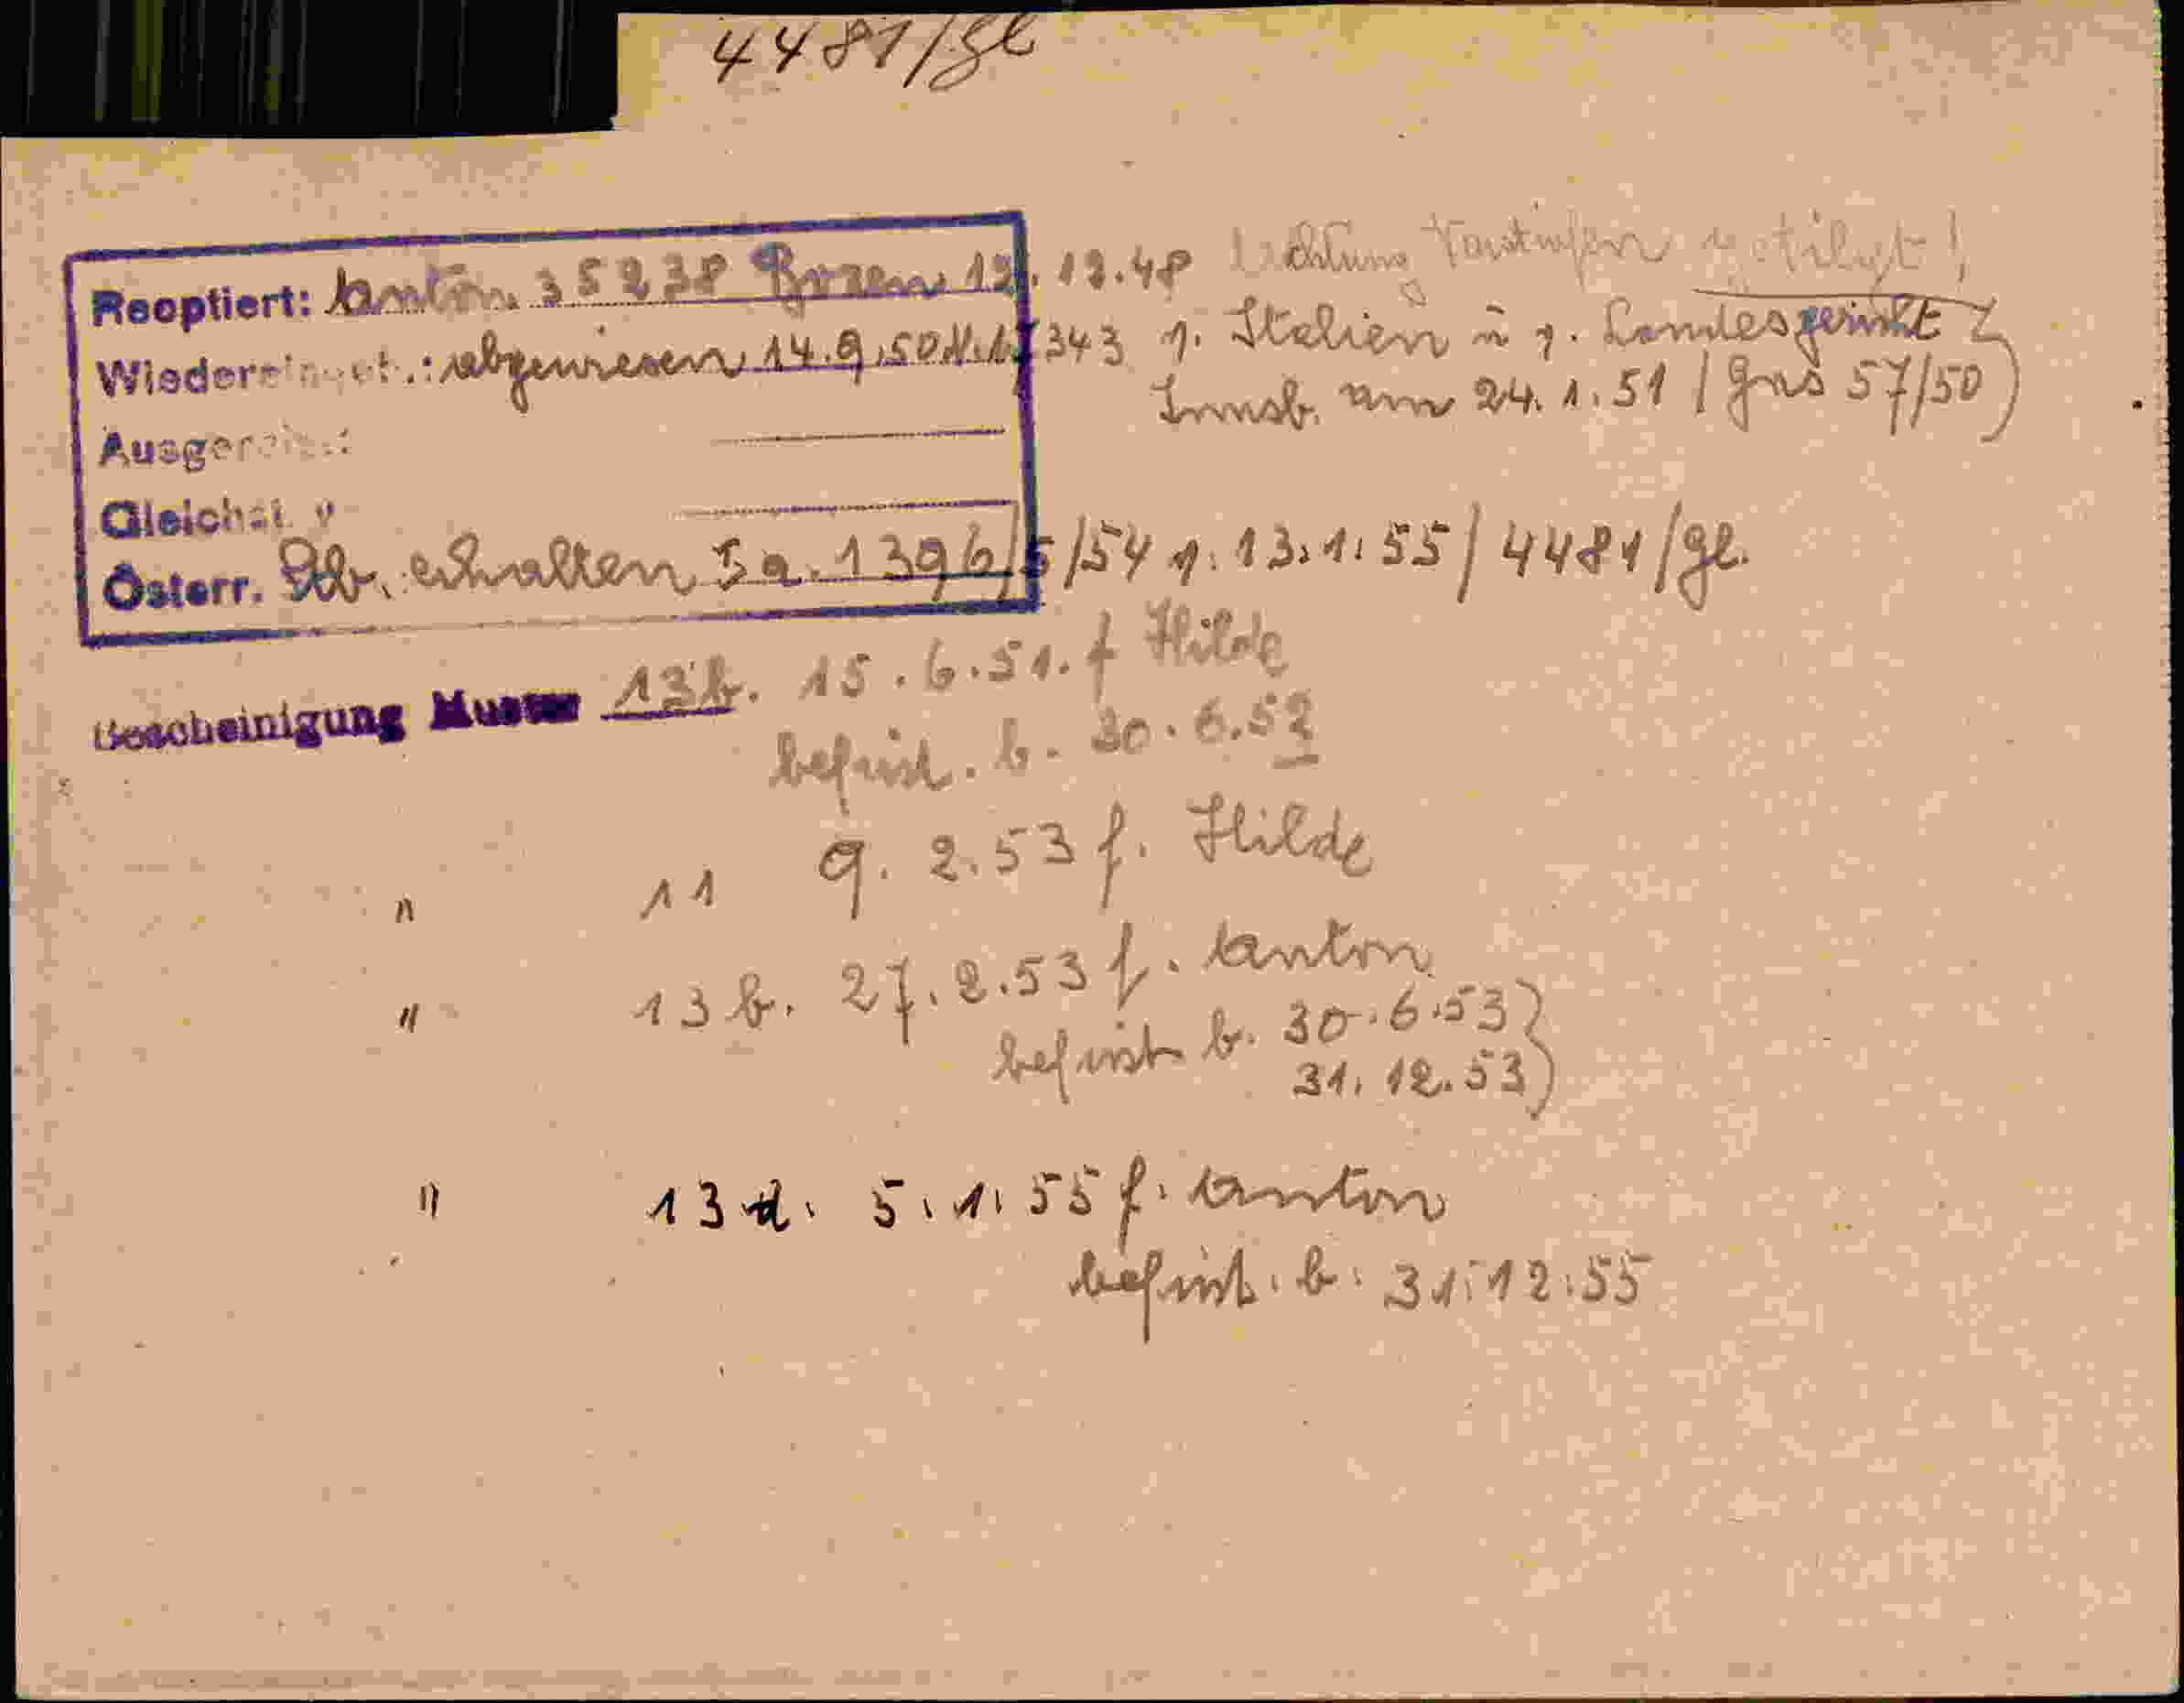 4481/gl
Achtung Vorstrafen getilgt!
Reoptiert: Anton 35238 Bozen 12.12.48
Wiedereingeb.: abgewiesen 14.9.50 N. 17343 v. Italien u v. Landesgericht
Innsb. am 24.1.51 / Gns 57/50)
Ausgereist:
Gleichst.
Österr. Stb. erhalten Ia. 1396/5/54 v. 13.1.55 / 4481/gl.
Bescheinigung Muster 13b. 15.6.51. f Hilde
befrist. b. 30.6.52
" 11 9.2.53 f. Hilde
" 13b. 27.2.53 f. Anton
befrist b. 30.6.53)
31.12.53)
" 13d. 5.1.55 f. Anton
befrist. b. 31.12.55